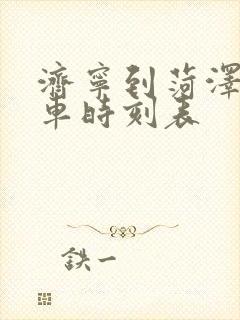 濟寧到菏澤
車時刻表
鉄一